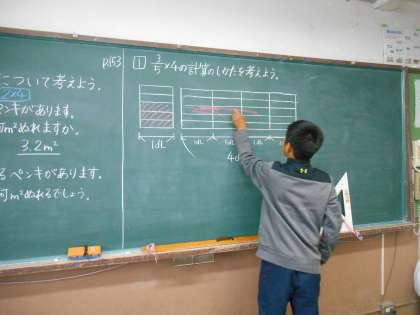 について考えよう。
2×4
ペンキがあります。
何m²ぬれますか。
3.2m²
るペンキがあります。
何m²ぬれるでしょう。
P153
1 3/5×4の計算のしかたを考えよう。
1dL
1dL 1dL 1dL
4d